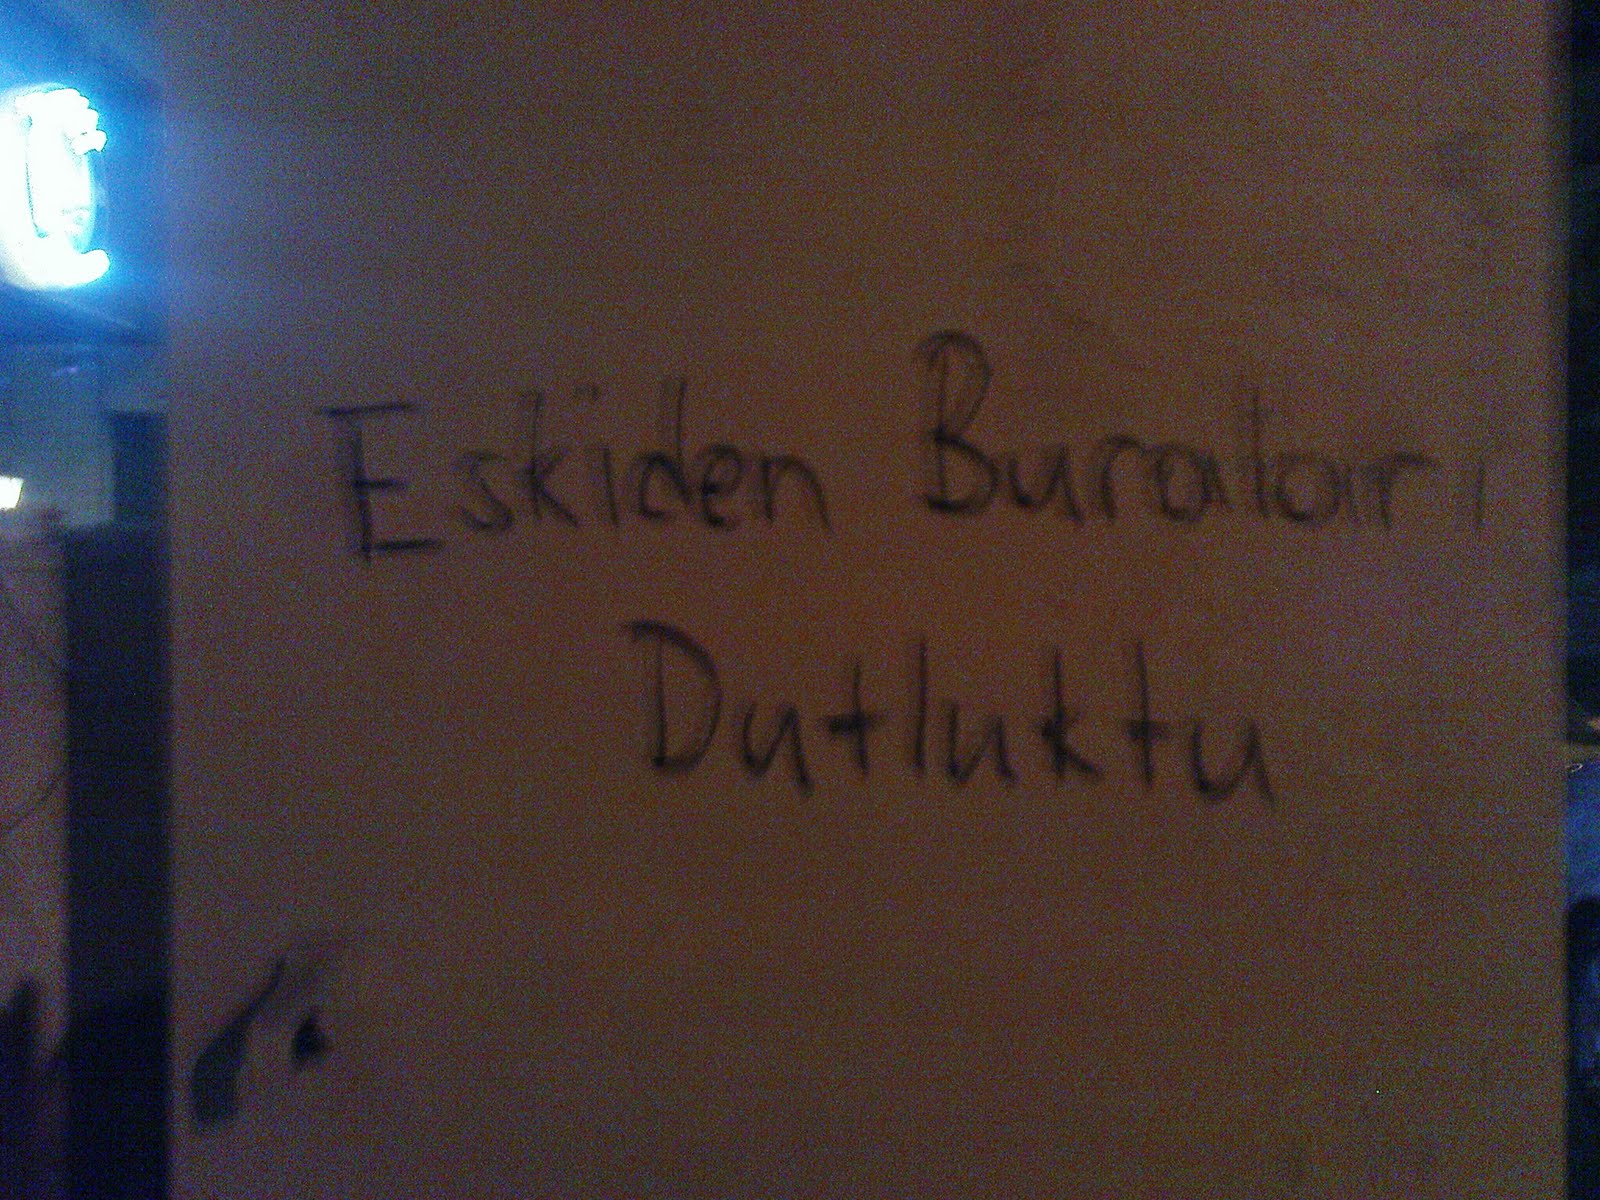 Eskiden Buraları
Dutluktu